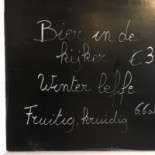 Bier in de
kijker €3
Winter leffe
Fruitig, kruidig 6,6%